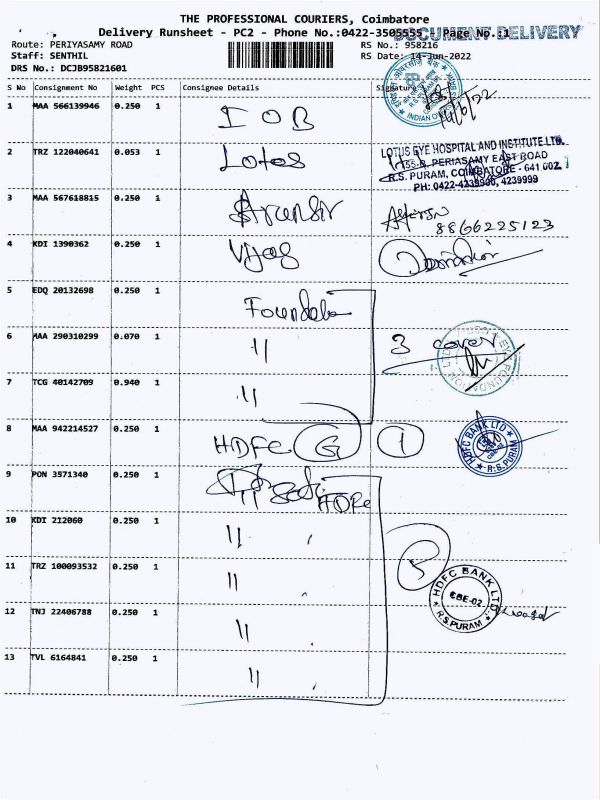 THE PROFESSIONAL COURIERS, Coimbatore
Delivery Runsheet - PC2 - Phone No.:0422-3505555 Page No.:1
DOCUMENT DELIVERY
Route: PERIYASAMY ROAD RS No.: 958216
Staff: SENTHIL RS Date: 14-Jun-2022
DRS No.: DCJB95821601
S No Consignment No Weight PCS Consignee Details Signature
1 MAA 566139946 0.250 1 IOB 14/6/22
2 TRZ 122040641 0.053 1 Lotus
LOTUS EYE HOSPITAL AND INSTITUTE LTD.
155-B, PERIASAMY EAST ROAD
R.S. PURAM, COIMBATORE - 641 002.
PH: 0422-4239900, 4239999
3 MAA 567618815 0.250 1
8866225123
4 KDI 1390362 0.250 1
5 EDQ 20132698 0.250 1
6 MAA 290310299 0.070 1 " 3 cover
7 TCG 40142709 0.940 1 "
8 MAA 942214527 0.250 1 HDFC G 1
HDFC BANK LTD
R.S. PURAM
9 PON 3571340 0.250 1 HDFC
10 KDI 212060 0.250 1 "
11 TRZ 100093532 0.250 1 " 5
HDFC BANK LTD
CBE-02
R S PURAM
12 TNJ 22406788 0.250 1 "
13 TVL 6164841 0.250 1 "